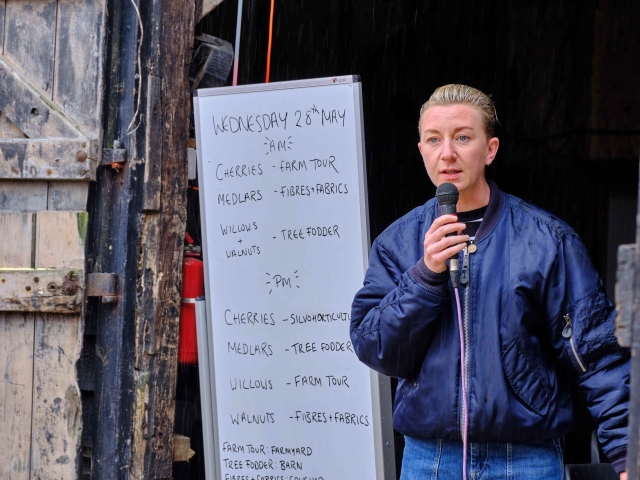 WEDNESDAY 28th MAY
AM
CHERRIES - FARM TOUR
MEDLARS - FIBRES + FABRICS
WILLOWS
+
WALNUTS - TREE FODDER
PM
CHERRIES - SILVOHORTICULTU
MEDLARS - TREE FODDER
WILLOWS - FARM TOUR
WALNUTS - FIBRES + FABRICS
FARM TOUR: FARMYARD
TREE FODDER: BARN
FIBRES + FABRICS: